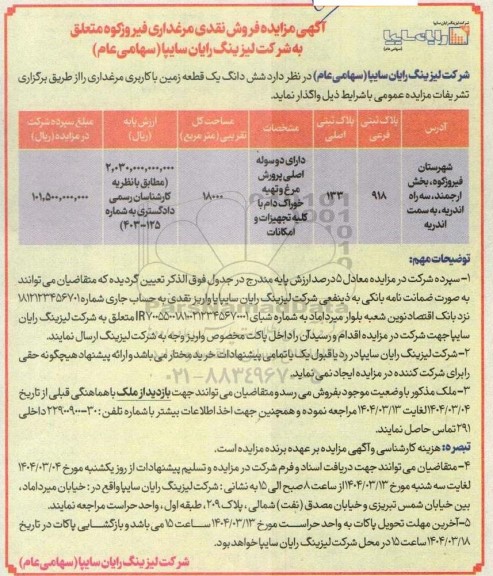 شرکت لیزینگ رایان سایپا
رایان سایپا
(سهامی عام)
آگهی مزایده فروش نقدی مرغداری فیروزکوه متعلق
به شرکت لیزینگ رایان سایپا (سهامی عام)
شرکت لیزینگ رایان سایپا (سهامی عام) در نظر دارد شش دانگ یک قطعه زمین با کاربری مرغداری را از طریق برگزاری
تشریفات مزایده عمومی با شرایط ذیل واگذار نماید.
آدرس | پلاک ثبتی فرعی | پلاک ثبتی اصلی | مشخصات | مساحت کل تقریبی (متر مربع) | ارزش پایه (ریال) | مبلغ سپرده شرکت در مزایده (ریال)
شهرستان فیروزکوه، بخش ارجمند، سه راه اندریه، به سمت اندریه | ۹۱۸ | ۱۳۳ | دارای دو سوله اصلی پرورش مرغ و تهیه خوراک دام با کلیه تجهیزات و امکانات | ۱۸۰۰۰ | ۲,۰۳۰,۰۰۰,۰۰۰,۰۰۰ (مطابق با نظریه کارشناسان رسمی دادگستری به شماره ۱۲۵-۴۰۳) | ۱۰۱,۵۰۰,۰۰۰,۰۰۰
توضیحات مهم:
۱- سپرده شرکت در مزایده معادل ۵ درصد ارزش پایه مندرج در جدول فوق الذکر تعیین گردیده که متقاضیان می توانند
به صورت ضمانت نامه بانکی به ذینفعی شرکت لیزینگ رایان سایپا یا واریز نقدی به حساب جاری شماره ۱۸۱۲۱۲۳۴۵۶۷۰۱
نزد بانک اقتصاد نوین شعبه بلوار میرداماد به شماره شبای متعلق به شرکت لیزینگ رایان
سایپا جهت شرکت در مزایده اقدام و رسید آن را داخل پاکت مخصوص واریز وجه به شرکت لیزینگ ارسال نمایند.
۲- شرکت لیزینگ رایان سایپا در رد یا قبول یک یا تمامی پیشنهادات خرید مختار می باشد و ارائه پیشنهاد هیچگونه حقی
را برای شرکت کننده در مزایده ایجاد نمی نماید.
۳- ملک مذکور با وضعیت موجود بفروش می رسد و متقاضیان می توانند جهت بازدید از ملک با هماهنگی قبلی از تاریخ
۱۴۰۴/۰۳/۰۴ لغایت ۱۴۰۴/۰۳/۱۳ مراجعه نموده و همچنین جهت اخذ اطلاعات بیشتر با شماره تلفن: ۳۰-۲۲۹۰۰۹۰۰ داخلی
۲۹۱ تماس حاصل نمایند.
تبصره: هزینه کارشناسی و آگهی مزایده بر عهده برنده مزایده است.
۴- متقاضیان می توانند جهت دریافت اسناد و فرم شرکت در مزایده و تسلیم پیشنهادات از روز یکشنبه مورخ ۱۴۰۴/۰۳/۰۴
لغایت سه شنبه مورخ ۱۴۰۴/۰۳/۱۳ از ساعت ۸ صبح الی ۱۵ به نشانی: شرکت لیزینگ رایان سایپا واقع در: خیابان میرداماد،
بین خیابان شمس تبریزی و خیابان مصدق (نفت) شمالی، پلاک ۲۰۹، طبقه اول، واحد حراست مراجعه نمایند.
۵- آخرین مهلت تحویل پاکات به واحد حراست مورخ ۱۴۰۴/۰۳/۱۳ ساعت ۱۵ می باشد و بازگشایی پاکات در تاریخ
۱۴۰۴/۰۳/۱۸ ساعت ۱۵ در محل شرکت لیزینگ رایان سایپا خواهد بود.
شرکت لیزینگ رایان سایپا (سهامی عام)
۰۲۱-۸۸۳۴۹۶۷۰-۵